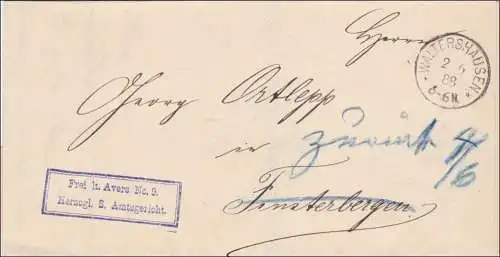 Herrn
WALTERSHAUSEN
2 6
88
6-6N.
Georg Ortlepp
in
zurück 4/6
Finsterbergen
Frei lt. Avers No. 9.
Herzogl. S. Amtsgericht.